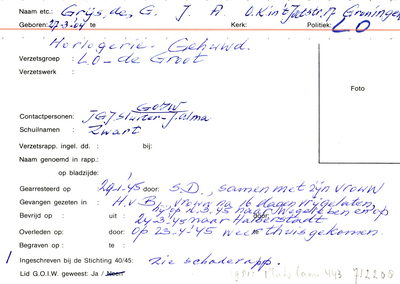 Naam etc.: Grijs, de, G. J. A. O.K. in 't Jatstr. 17 Groningen
Geboren: 27-3-'04 te Kerk: Politiek: LO
Horlogerie. Gehuwd.
Verzetsgroep : LO - de Groot
Verzetswerk :
Foto
GOIW
Contactpersonen: JGJ Sluiter-Julma
Schuilnamen : Zwart
Verzetsrapp. ingel. dd. : bij:
Naam genoemd in rapp.:
op bladzijde:
Gearresteerd op : 29-1-45 door: S.D., samen met zijn vrouw
Gevangen gezeten in : H.v.B., vrouw na 16 dagen vrijgelaten,
hij op 2-3-45 naar Wegeleben en op
Bevrijd op : uit : door:
24-3-45 naar Halberstadt
Overleden op: door: op 23-4-'45 weer thuisgekomen.
Begraven op : te :
Ingeschreven bij de Stichting 40/45: zie schaderapp.
Lid G.O.I.W. geweest: Ja / Neen 443 712208